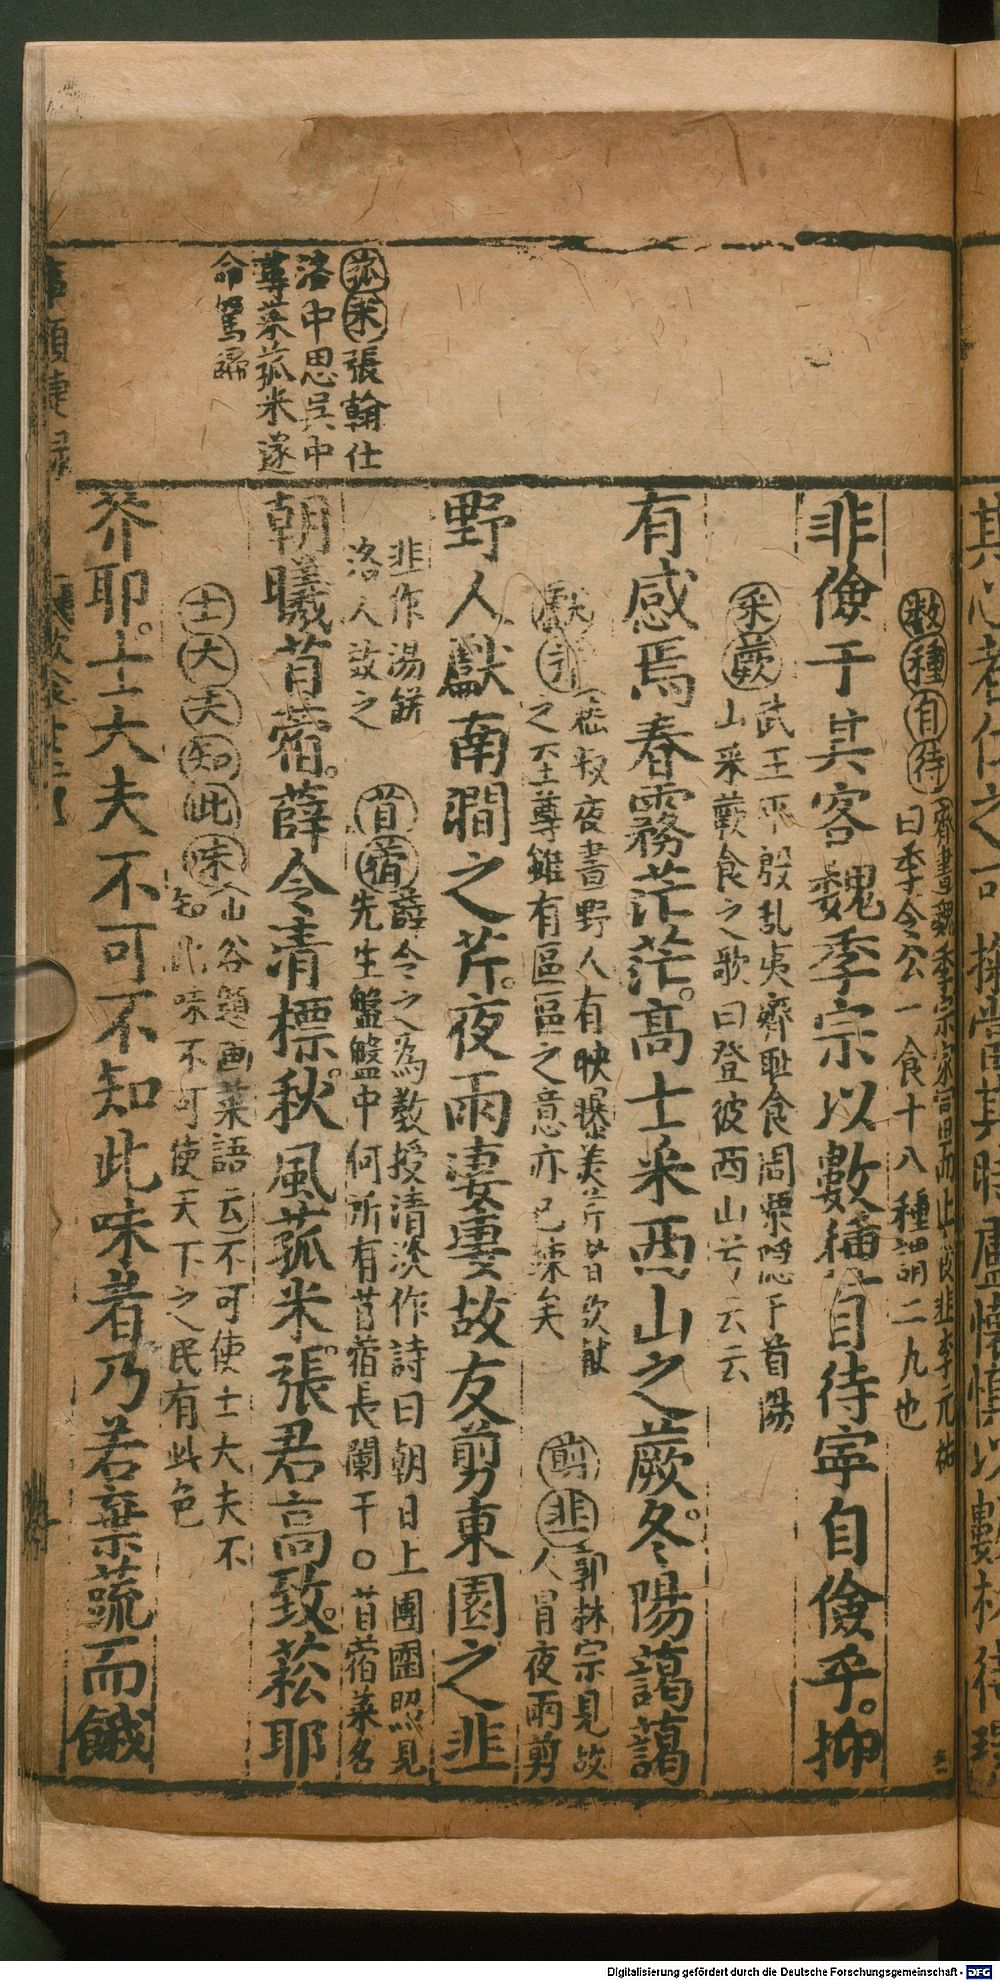 數種自待
齊書魏季宗家富而止惡衣韭李元祐
曰季令公一食十八種謂二九也
非儉于其客魏季宗以數種自待寧自儉乎抑
采蕨
武王平殷乱夷齊耻食周粟隱于首陽
山采蕨食之歌曰登彼西山兮云云
有感焉春霧茫茫高士采西山之蕨冬陽藹藹
獻芹
嵇叔夜書野人有映曝美芹昔欲献
之至尊雖有區區之意亦已疎矣
剪韭
郭林宗見故
人冒夜雨剪
野人獻南澗之芹夜雨凄凄故友剪東園之韭
韭作湯餅
洛人效之
苜蓿
薛令之為教授清淡作詩曰朝日上團團照見
先生盤盤中何所有苜蓿長闌干○苜蓿菜名
菰米張翰仕
洛中思吳中
蓴菜菰米遂
命駕歸
朝曦苜蓿薛令清標秋風菰米張君高致菘耶
士大夫知此味
山谷題画菜語云不可使士大夫不
知此味不可使天下之民有此色
芥耶士大夫不可不知此味者乃若棄蔬而餓
Digitalisierung gefördert durch die Deutsche Forschungsgemeinschaft - DFG